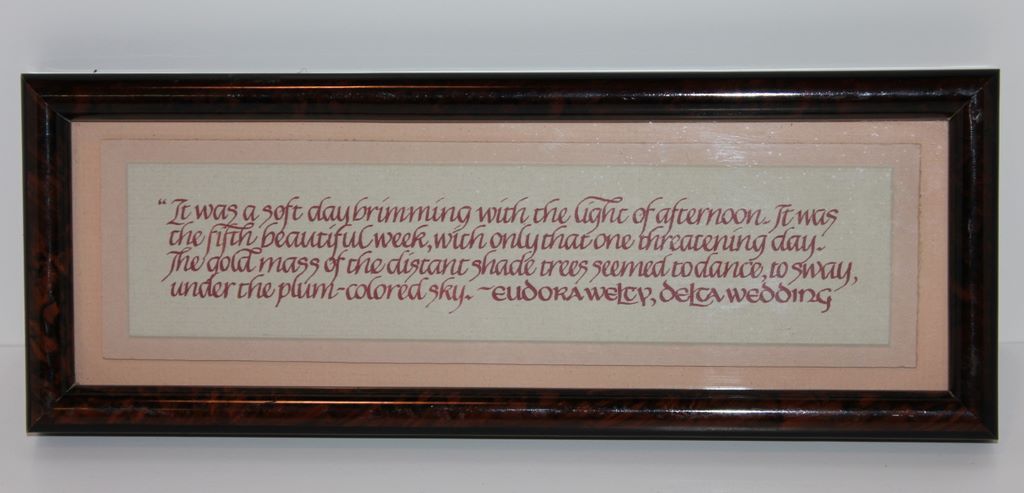 “It was a soft day brimming with the light of afternoon. It was
the fifth beautiful week, with only that one threatening day.
The gold mass of the distant shade trees seemed to dance, to sway,
under the plum-colored sky. ~EUDORA WELTY, DELTA WEDDING